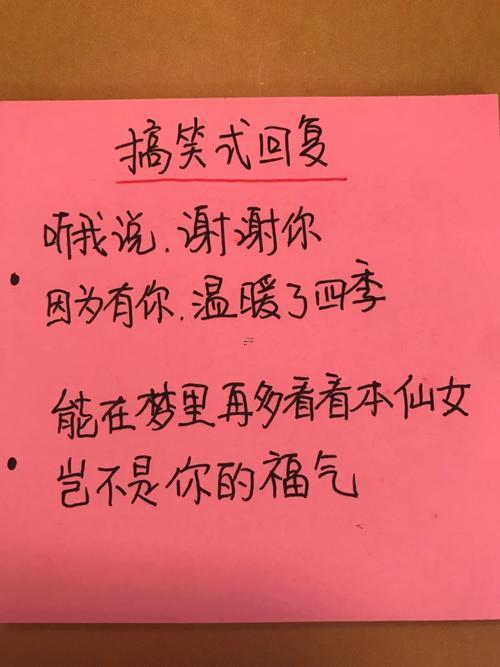 搞笑式回复
听我说.谢谢你
因为有你.温暖了四季
能在梦里再多看看本仙女
岂不是你的福气